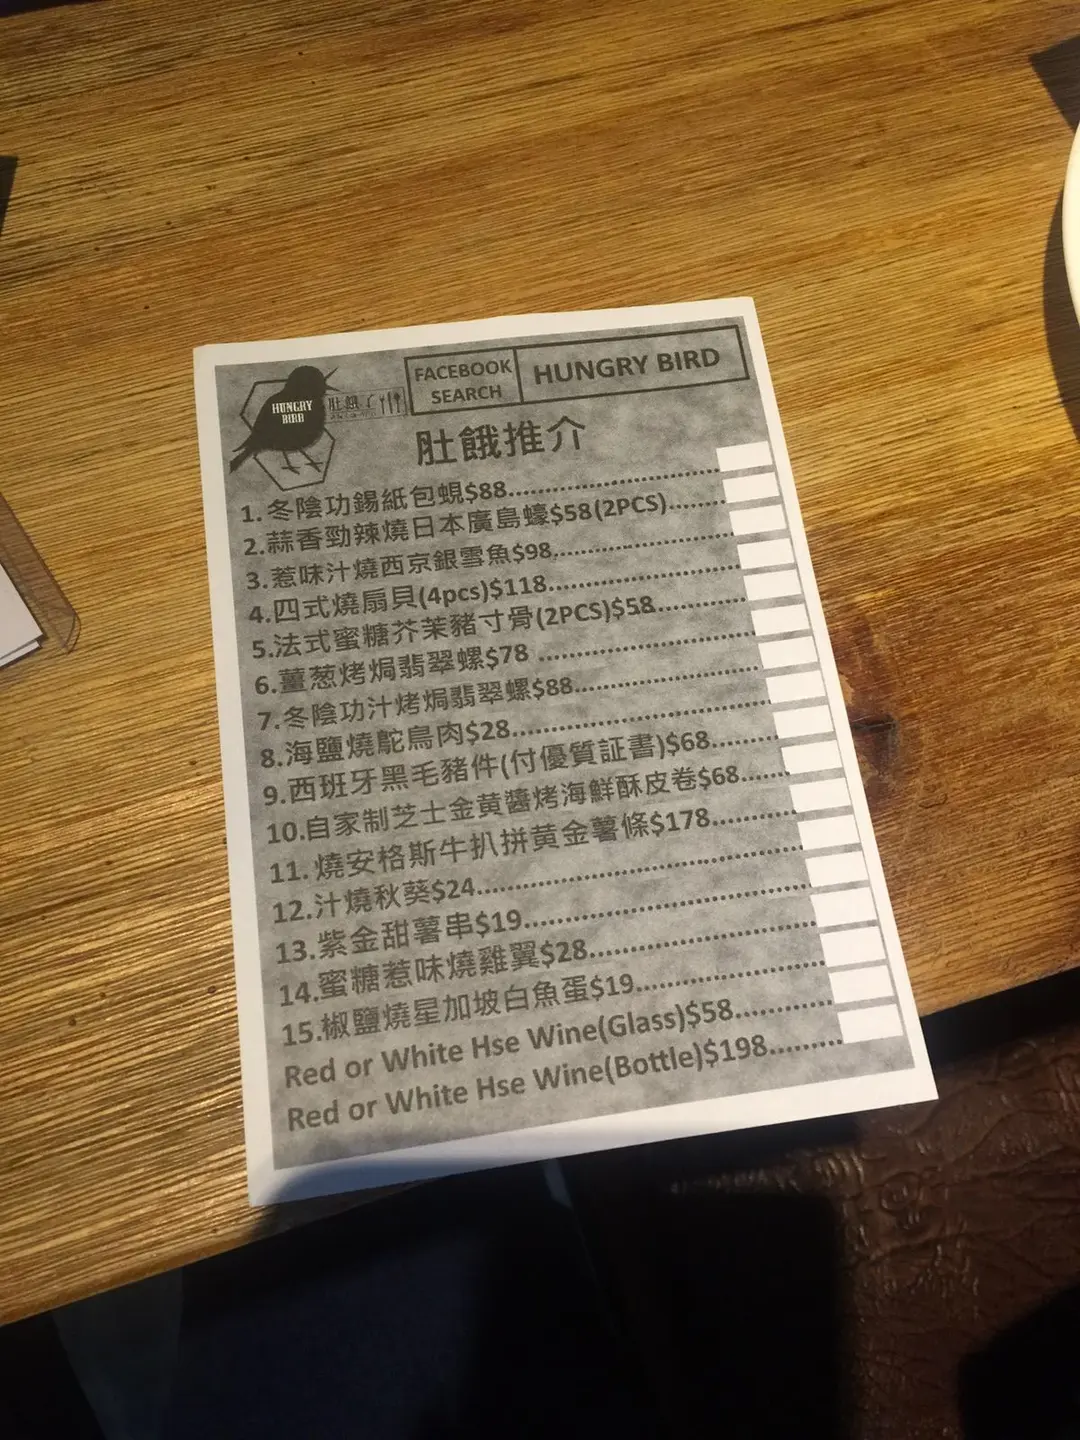 FACEBOOK SEARCH
HUNGRY BIRD
HUNGRY BIRD
肚餓了
肚餓推介
1. 冬陰功錫紙包蜆$88
2.蒜香勁辣燒日本廣島蠔$58(2PCS)
3.惹味汁燒西京銀雪魚$98
4.四式燒扇貝(4pcs)$118
5.法式蜜糖芥茉豬寸骨(2PCS)$58
6.薑葱烤焗翡翠螺$78
7.冬陰功汁烤焗翡翠螺$88
8.海鹽燒鴕鳥肉$28
9.西班牙黑毛豬件(付優質証書)$68
10.自家制芝士金黄醬烤海鮮酥皮卷$68
11. 燒安格斯牛扒拼黄金薯條$178
12.汁燒秋葵$24
13.紫金甜薯串$19
14.蜜糖惹味燒雞翼$28
15.椒鹽燒星加坡白魚蛋$19
Red or White Hse Wine(Glass)$58
Red or White Hse Wine(Bottle)$198